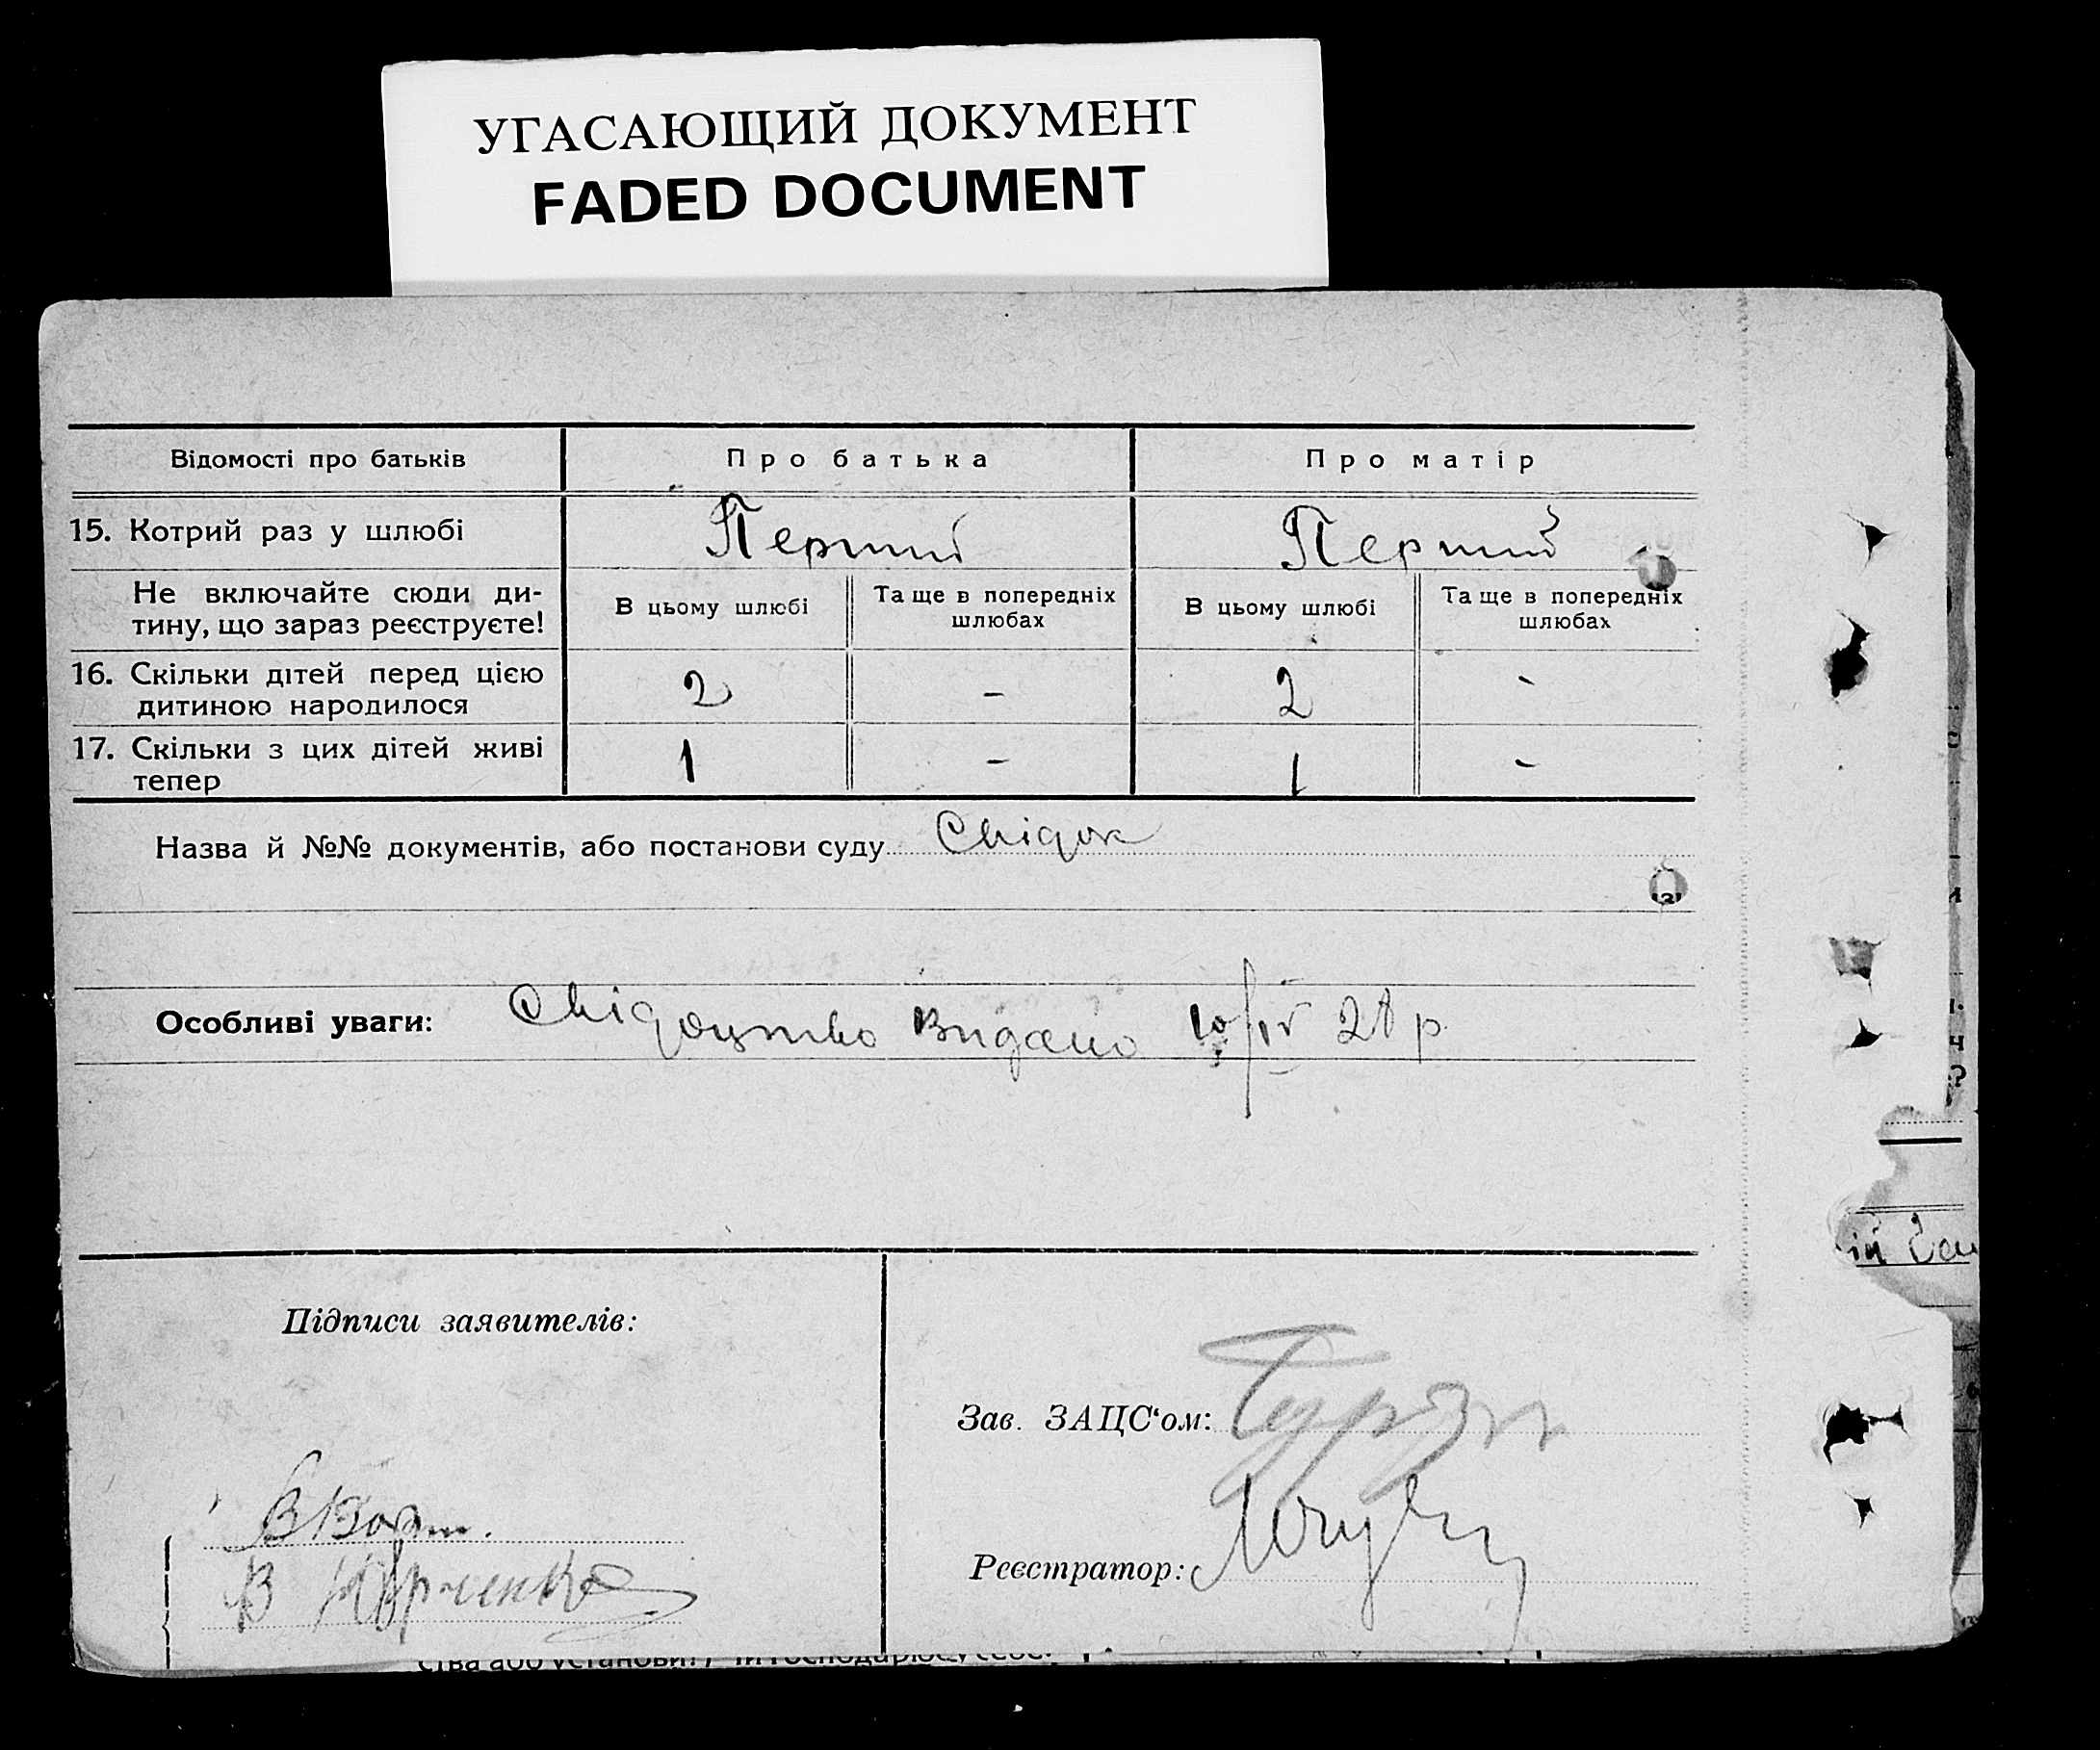 УГАСАЮЩИЙ ДОКУМЕНТ
FADED DOCUMENT
Відомості про батьків
Про батька
Про матір
15. Котрий раз у шлюбі
Перший
Перший
Не включайте сюди ди-
тину, що зараз реєструєте!
В цьому шлюбі
Та ще в попередніх
шлюбах
В цьому шлюбі
Та ще в попередніх
шлюбах
16. Скільки дітей перед цією
дитиною народилося
2
-
2
-
17. Скільки з цих дітей живі
тепер
1
-
1
-
Назва й №№ документів, або постанови суду Свідок
Особливі уваги: Свідоцтво Видано 10/IV р
Підписи заявителів:
Зав. ЗАЦС‘ом:
В
В
Реєстратор: